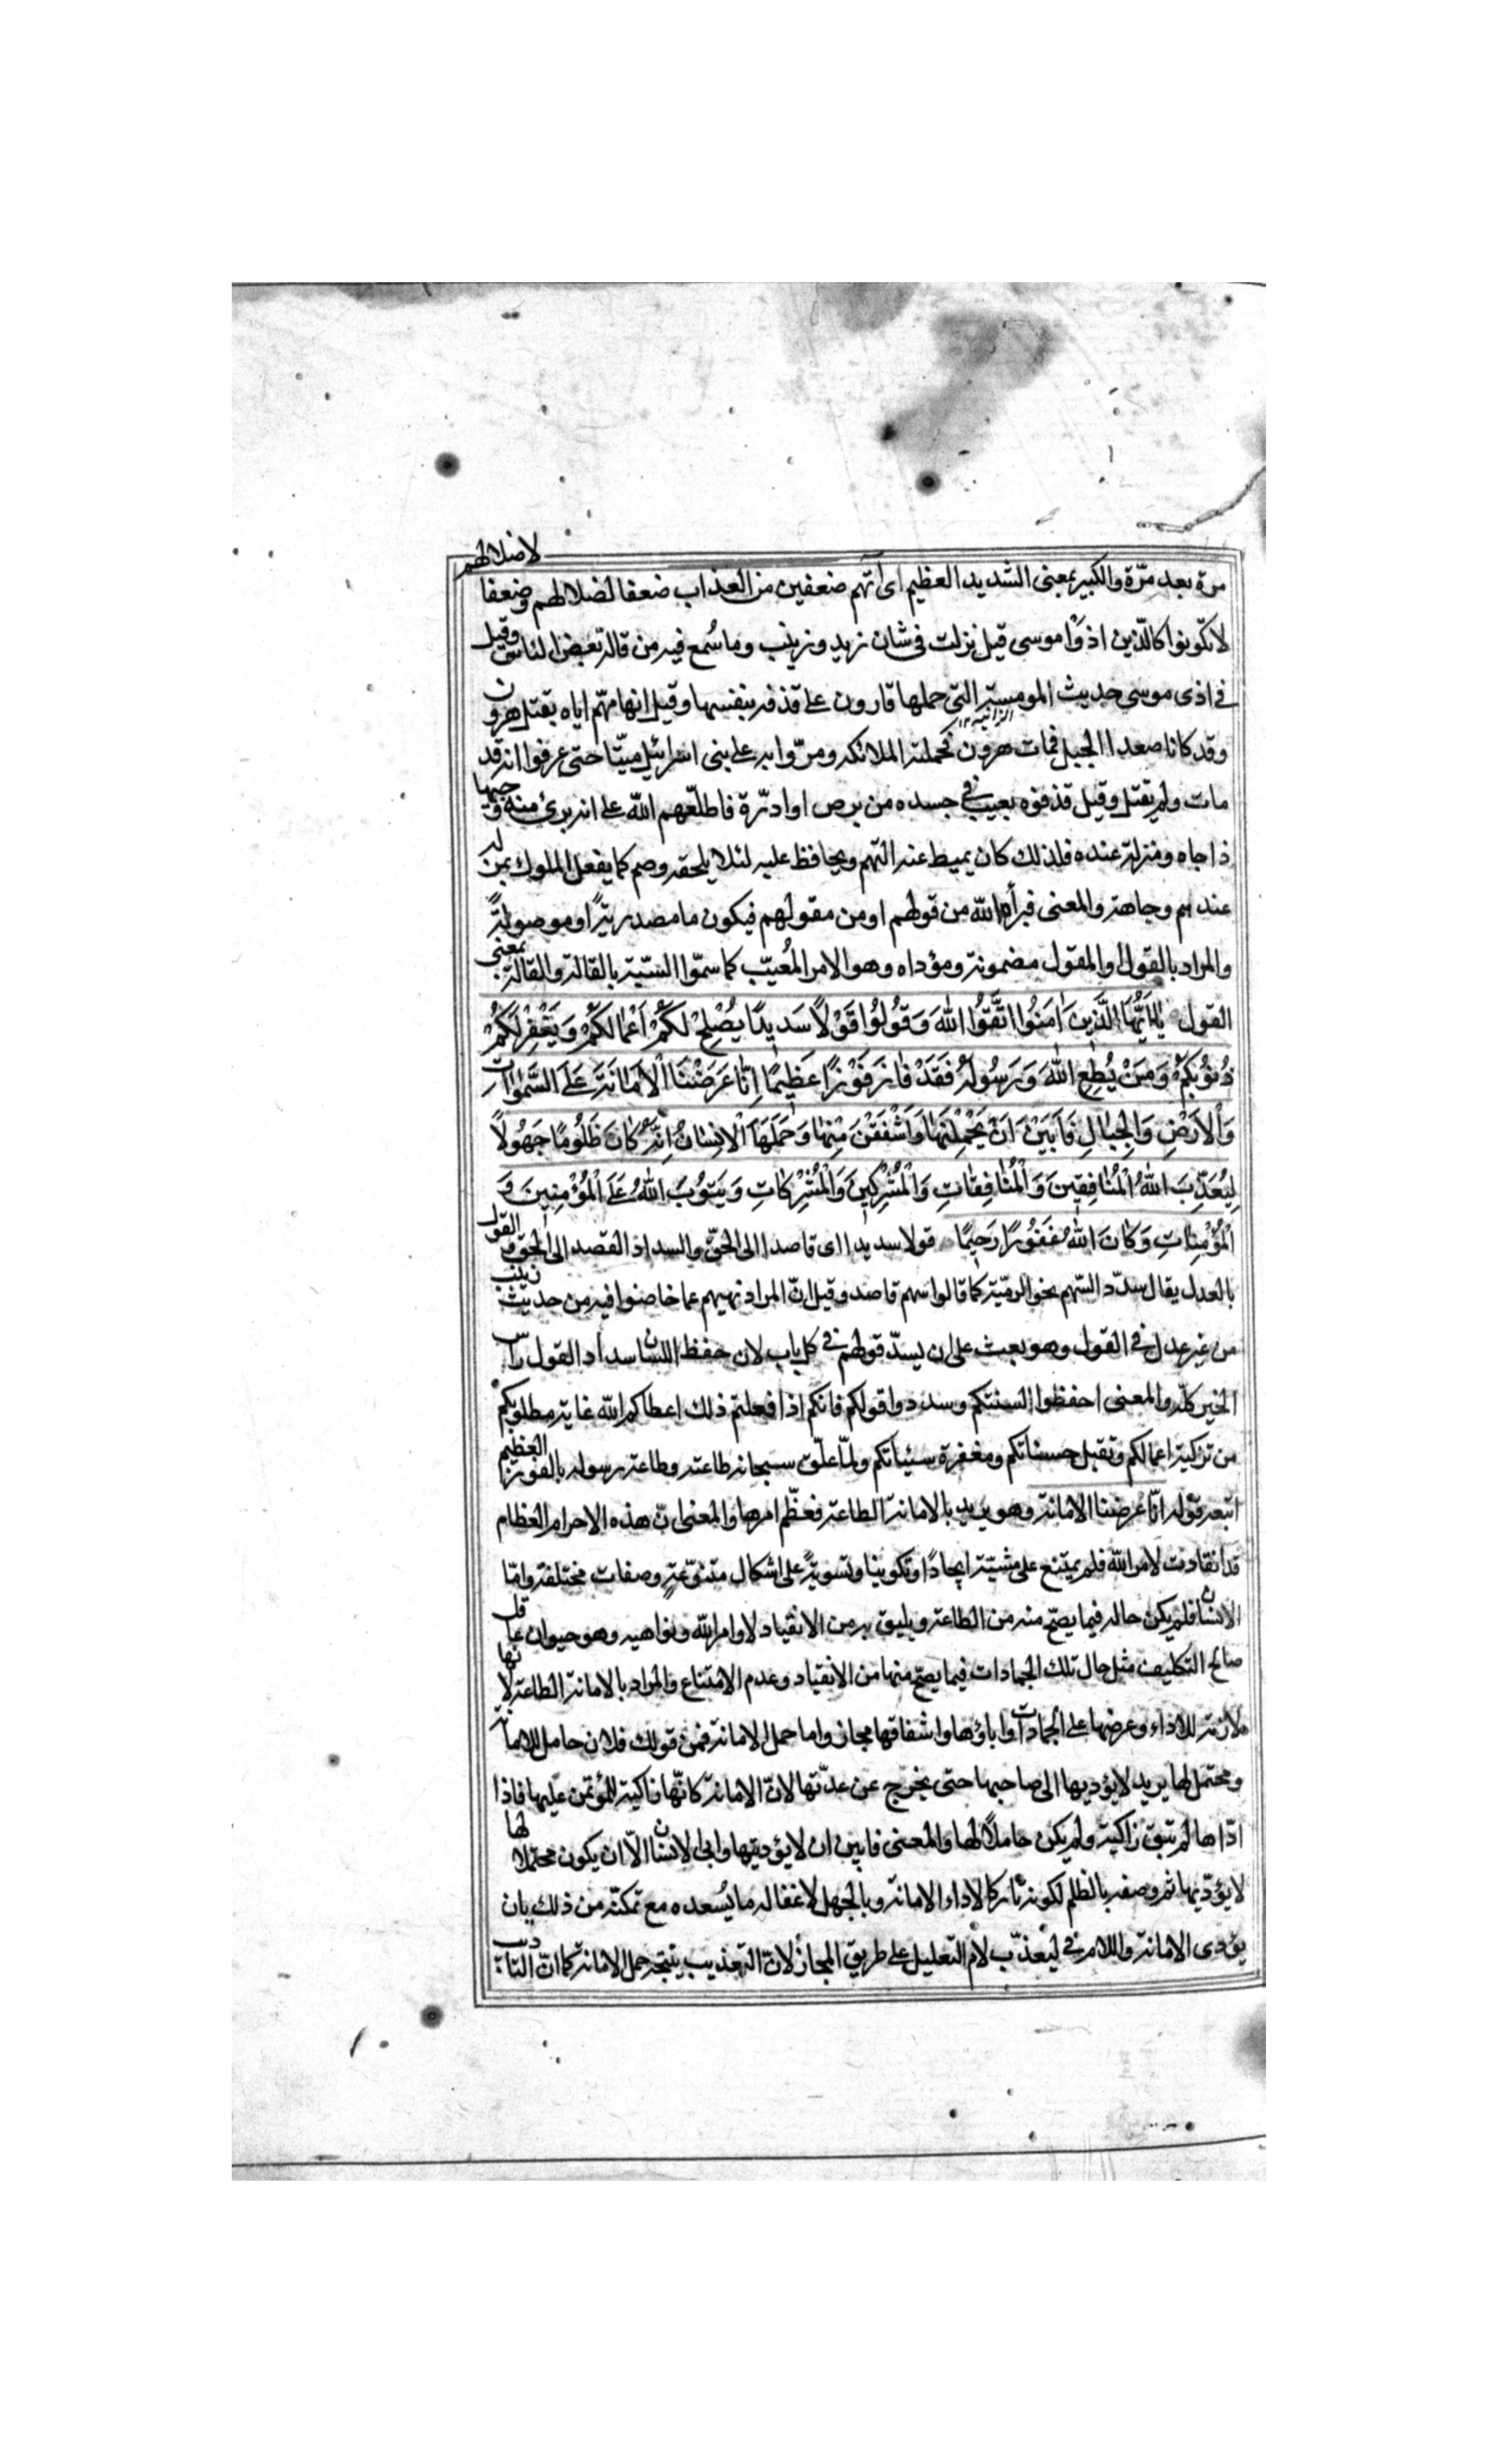 مرة بعد مرّة والكبير بمعنى الشديد العظيم اى آتهم ضعفين من العذاب ضعفا لضلالهم وضعفا لاضلالهم
لا تكونوا كالّذين اذوا موسى قيل نزلت فى شان زيد وزينب وما سُمع فيه من قالة بعض الناس وقيل
فى اذى موسى حديث المومسة التى حملها قارون على قذفه بنفسها وقيل اتهامهم اياه بقتل هرون
الزانيه ١٢
وقد كانا صعدا الجبل فمات هرون فحملته الملائكه ومرّوا به على بنى اسرائيل ميتّا حتى عرفوا انه قد
مات ولم يقتل وقيل قذفوه بعيب فى جسده من برص او ادرّة فاطلّعهم اللّه على انه برئ منه وجيها
ذا جاه ومنزلة عنده فلذلك كان يميط عنه التهم ويحافظ عليه لئلا يلحقه وصم كما يفعل الملوك بمن له
عندهم وجاهة والمعنى فبرأه اللّه من قولهم او من مقولهم فيكون ما مصدريةً او موصولةً
والمراد بالقول او المقول مضمونه ومؤداه وهو الامر المُعيّب كما سمّوا السّبّة بالقالة والقالة بمعنى
القول يٰاَيُّهَا الَّذِينَ اٰمَنُوا اتَّقُوا اللّٰهَ وَقُولُوا قَوْلًا سَدِيدًا يُصْلِحْ لَكُمْ اَعْمٰالَكُمْ وَيَغْفِرْ لَكُمْ
ذُنُوبَكُمْ وَمَنْ يُطِعِ اللّٰهَ وَرَسُولَهُ فَقَدْ فٰازَ فَوْزًا عَظِيمًا اِنّٰا عَرَضْنَا الْاَمٰانَةَ عَلَى السَّمٰوٰاتِ
وَالْاَرْضِ وَالْجِبٰالِ فَاَبَيْنَ اَنْ يَحْمِلْنَهٰا وَاَشْفَقْنَ مِنْهٰا وَحَمَلَهَا الْاِنْسٰانُ اِنَّهُ كٰانَ ظَلُومًا جَهُولًا
لِيُعَذِّبَ اللّٰهُ الْمُنٰافِقِينَ وَالْمُنٰافِقٰاتِ وَالْمُشْرِكِينَ وَالْمُشْرِكٰاتِ وَيَتُوبَ اللّٰهُ عَلَى الْمُؤْمِنِينَ وَ
الْمُؤْمِنٰاتِ وَكٰانَ اللّٰهُ غَفُورًا رَحِيمًا قولا سديدا اى قاصدا الى الحقّ والسداد القصد الى الحق والقول
بالعدل يقال سدّد السّهم نحو الرميّة كما قالوا سهم قاصد وقيل انّ المراد نهيهم عما خاضوا فيه من حديث زينب
من غير عدل فى القول وهو بعث على ان يسدّ قولهم فى كل باب لان حفظ اللسان سداد القول راس
الخير كلّه والمعنى احفظوا السنتكم وسددوا قولكم فانكم اذا فعلتم ذلك اعطاكم اللّه غاية مطلوبكم
من تزكية اعمالكم وتقبل حسناتكم ومغفرة سيئاتكم ولمّا علّق سبحانه طاعته وطاعة رسوله بالفوز العظيم
اتبعه قوله انّا عرضنا الامانة وهو يريد بالامانة الطاعة فعظّم امرها والمعنى انّ هذه الاجرام العظام
قد انقادت لامر اللّه فلم يمتنع على مشيّته ايجادًا وتكوينا وتسويةً على اشكال متنوّعةٍ وصفات مختلفة وامّا
الانسان فلم يكن حاله فيما يصحّ منه من الطاعة ويليق به من الانقياد لاوامر اللّه ونواهيه وهو حيوان عاقل
صالح التكليف مثل حال تلك الجمادات فيما يصحّ منها من الانقياد وعدم الامتناع والمراد بالامانة الطاعة لانها
لازمة للاداء وعرضها على الجمادات واباؤها واشفاقها مجاز واما حمل الامانة فمن قولك فلان حامل للامانة
ومحتمل لها يريد لا يؤديها الى صاحبها حتى يخرج عن عدّتها لانّ الامانة كانّها راكبة للمؤتمن عليها فاذا
ادّاها لم تبق راكبة ولم يكن حاملًا لها والمعنى فابين ان لا يؤديّنها وابى الانسان الّا ان يكون محتملا لها
لا يؤدّيها ثم وصفه بالظلم لكونه تاركا لاداء الامانة وبالجهل لاغفاله ما يُسعده مع تمكنّه من ذلك بان
يؤدى الامانة واللام فى ليعذّب لام التعليل على طريق المجاز لانّ التعذيب نتيجة حمل الامانة كما انّ التاديب